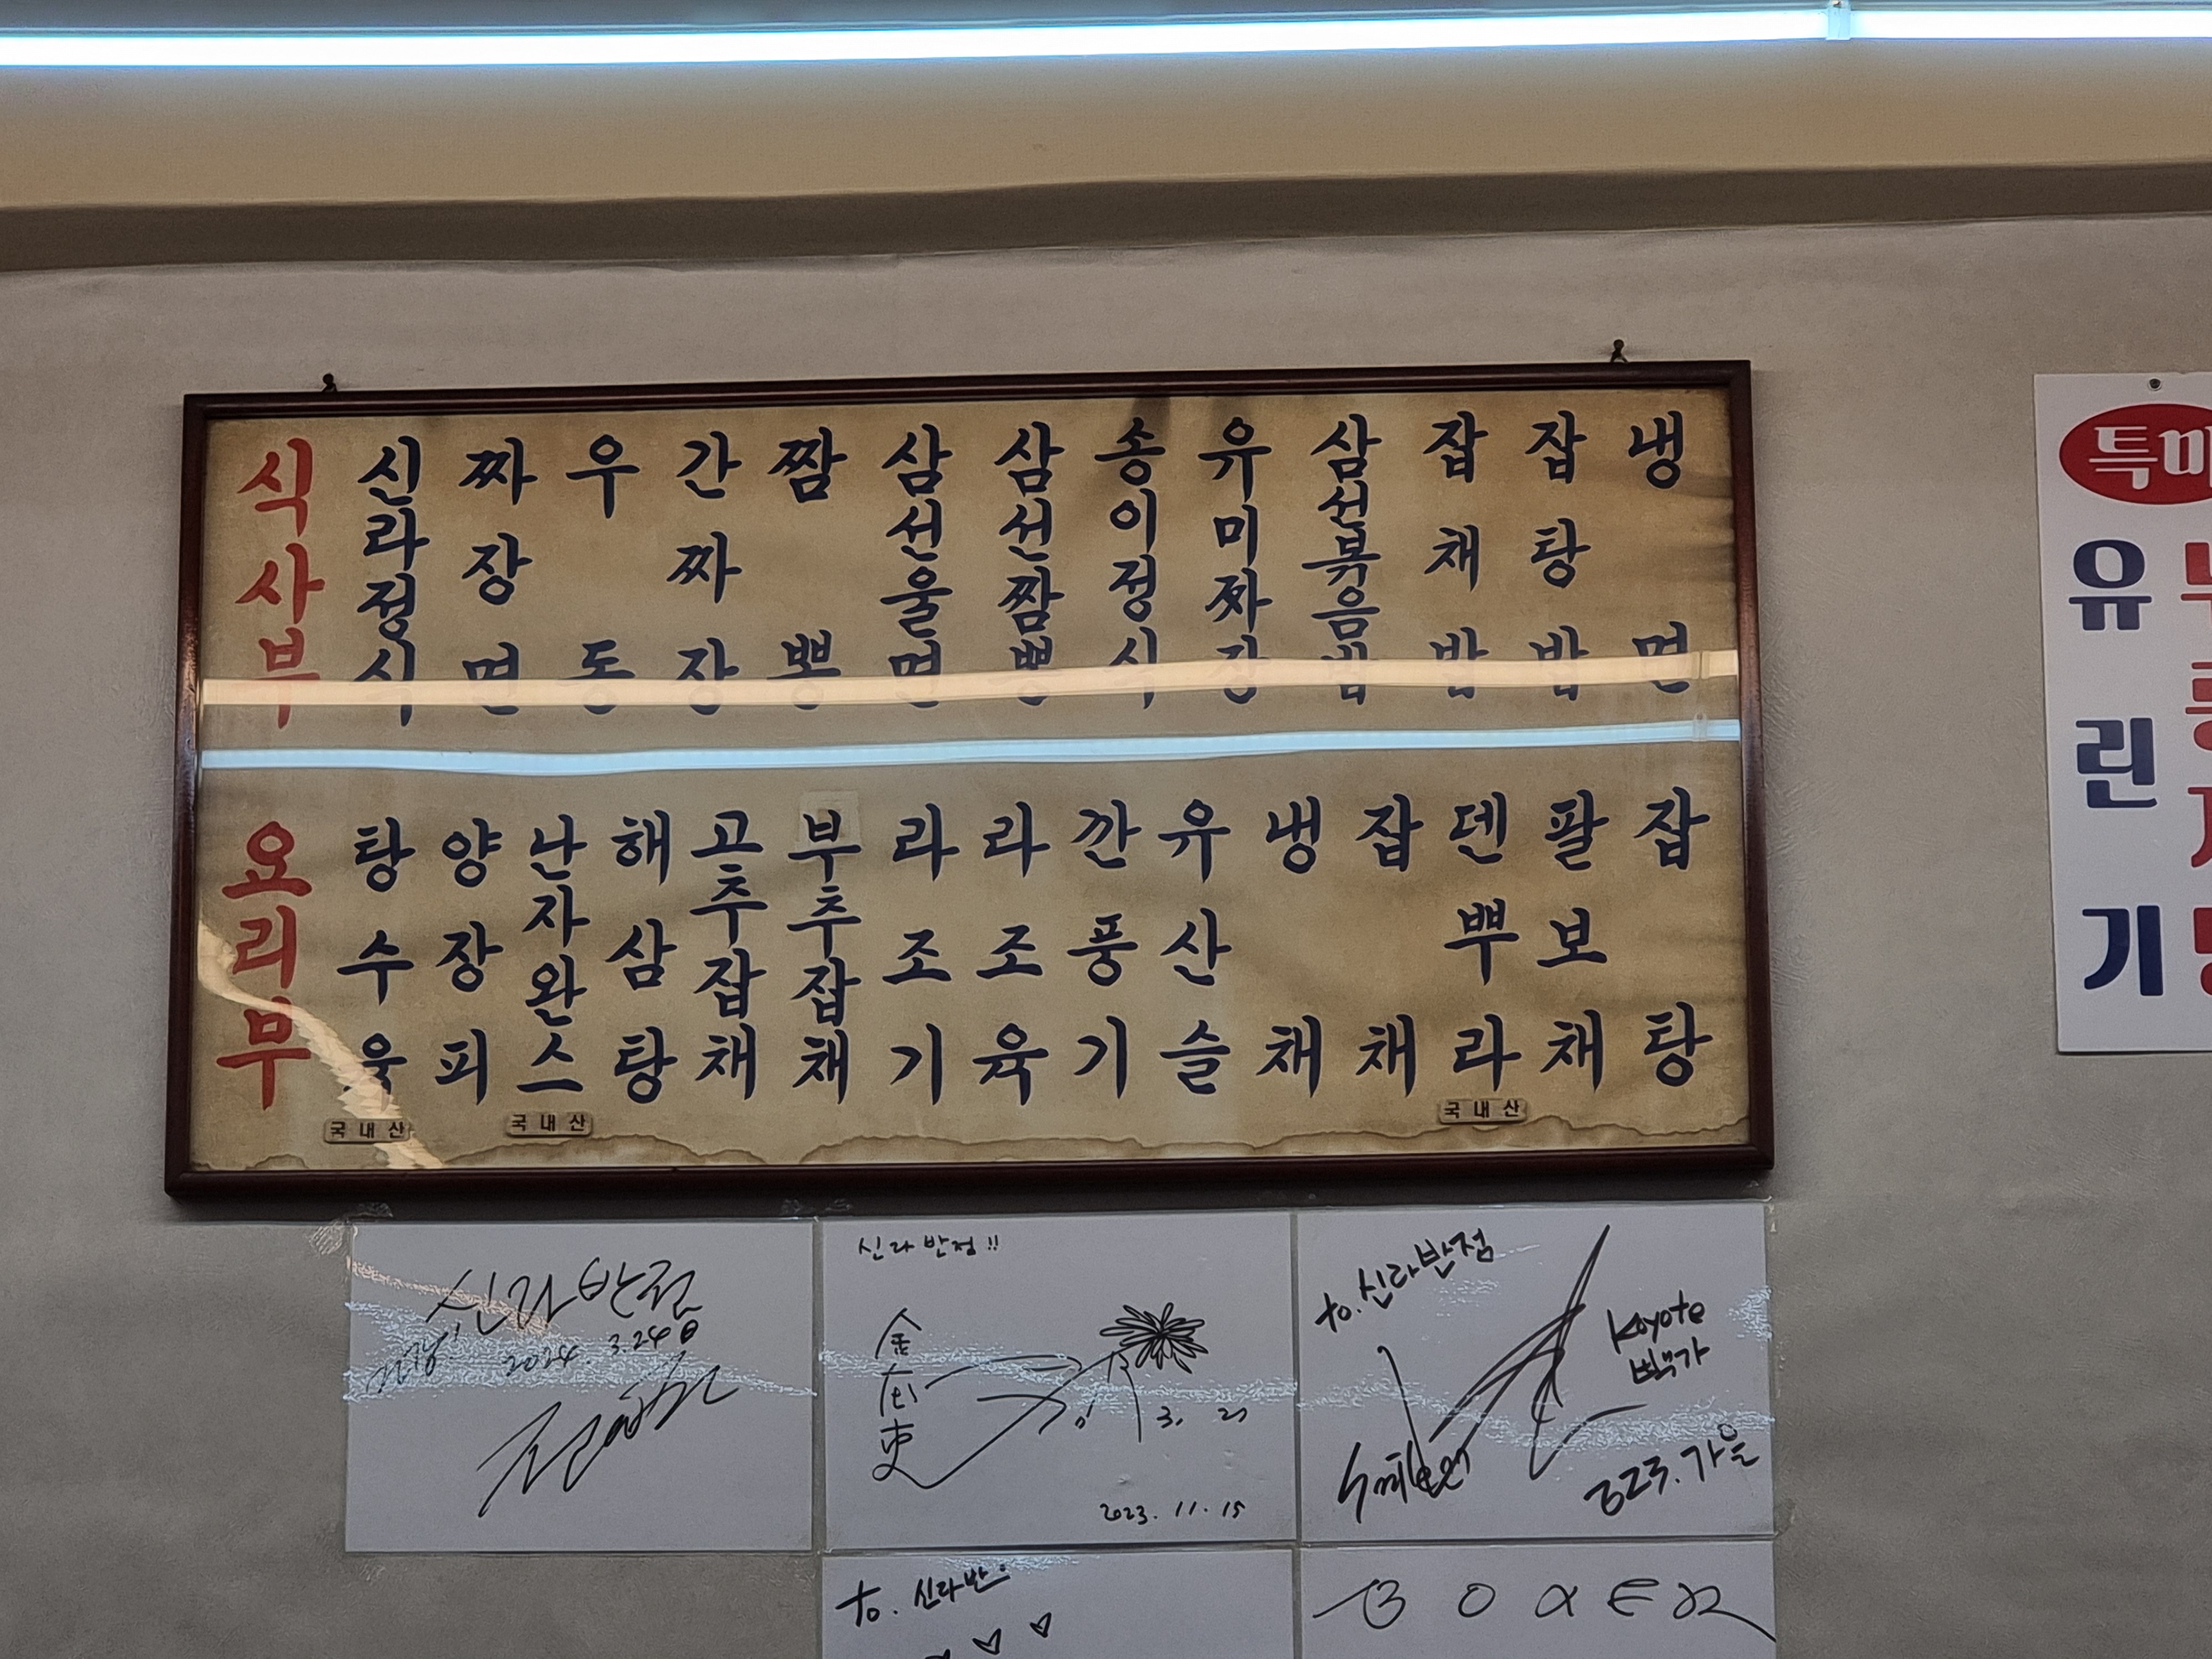 식사부
신라정식
짜장면
우동
간짜장
짬뽕
삼선울면
삼선짬뽕
송이정식
유미짜장
삼선볶음밥
잡채밥
잡탕밥
냉면
요리부
탕수육
양장피
난자완스
해삼탕
고추잡채
부추잡채
라조기
라조육
깐풍기
유산슬
냉채
잡채
덴뿌라
팔보채
잡탕
국내산
국내산
국내산
유린기
신라반점
2024. 3.24
신라반점!!
3. 21
2023. 11. 15
to. 신라반점
Koyote
빽가
2023. 가을
to. 신라반
BOXER